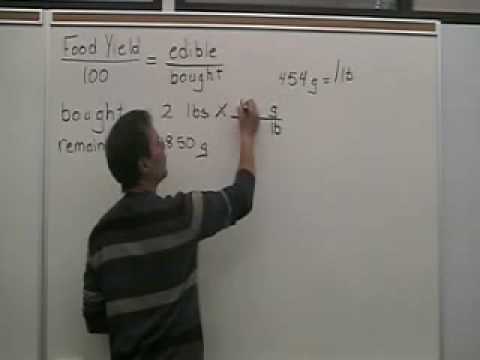 Food Yield / 100 = edible / bought
454 g = 1 lb
bought 2 lbs × g / lb
remain 850 g